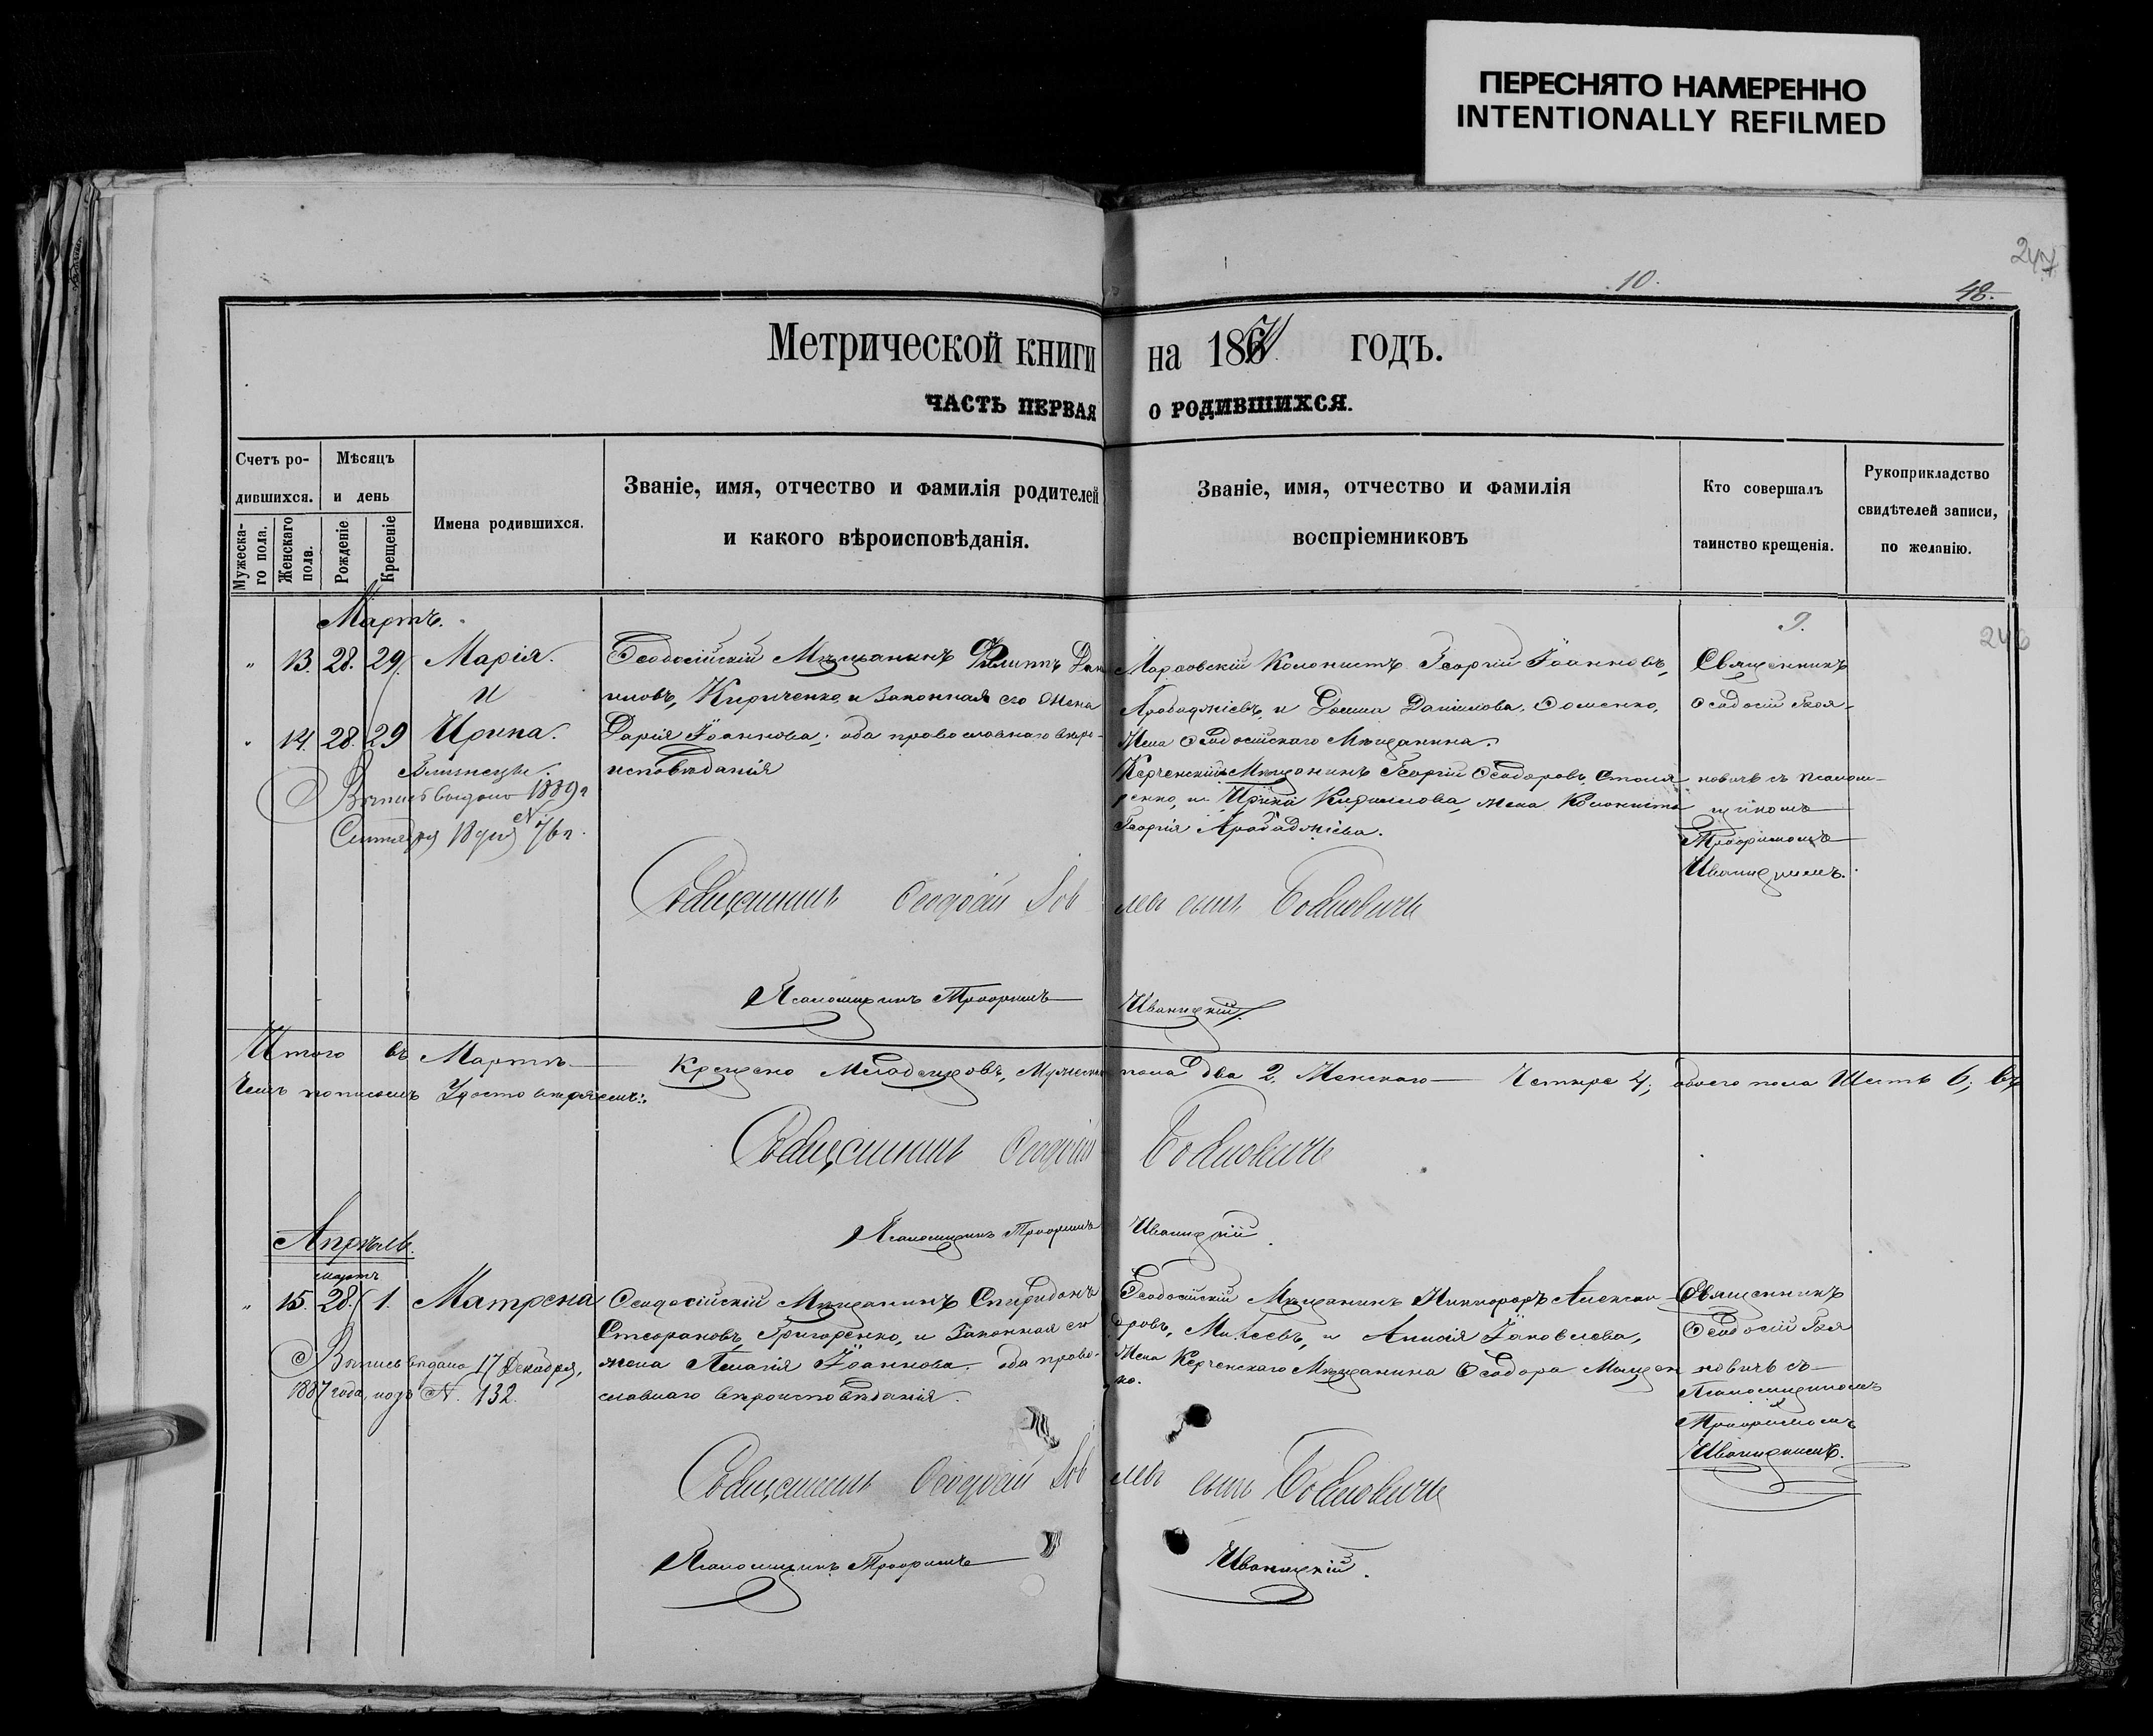 ПЕРЕСНЯТО НАМЕРЕННО
INTENTIONALLY REFILMED
247
10.
48.
Метрической книги на 187 годъ.
ЧАСТЬ ПЕРВАЯ О РОДИВШИХСЯ.
Счетъ ро-
дившихся.
Мужеска-
го пола.
Женскаго
пола.
Мѣсяцъ
и день
Рожденіе
Крещеніе
Имена родившихся.
Званіе, имя, отчество и фамилія родителей
и какого вѣроисповѣданія.
Званіе, имя, отчество и фамилія
воспріемниковъ
Кто совершалъ
таинство крещенія.
Рукоприкладство
свидѣтелей записи,
по желанію.
Мартъ.
9.
246
" 13. 28. 29. Марія.
и
" 14. 28. 29 Ирина.
Близнецы.
Выпись выдана 1889 г
Сентября 18 дня № 76 г.
Ѳеодосійскій Мѣщанинъ Филиппъ Дан
иловъ, Кириченко, и законная его жена
Дарія Іоаннова; оба православнаго вѣро-
исповѣданія
Колонистъ Георгій Іоанновъ,
Арабаджіевъ, и Данилова,
Жена Ѳеодосійскаго Мѣщанина.
Керченскій Мѣщанинъ Георгій Ѳеодоровъ Столя
ренко, и Ирина Кириллова, жена Колониста
Георгія Арабаджіева.
Священникъ
Ѳеодосій Боя-
новичъ съ псалом-
щикомъ
Трофимомъ
Иваницкимъ.
Священникъ Ѳеодосій Бояновичъ
Псаломщикъ Трофимъ Иваницкій.
Итого въ Мартѣ крещено Младенцовъ, Мужеска пола два 2, Женскаго Четыре 4; обоего пола Шесть 6; въ
чемъ подписомъ Удостовѣряемъ:
Священникъ Ѳеодосій Бояновичъ
Псаломщикъ Трофимъ Иваницкій.
Апрѣль.
Мартъ
" 15. 28. 1. Матрена
Выпись выдана 17 Декабря,
1887 года, подъ № 132.
Ѳеодосійскій Мѣщанинъ Спиридонъ
Стефановъ, Григоренко, и Законная его
жена Пелагія Іоаннова. оба право-
славнаго вѣроисповѣданія.
Ѳеодосійскій Мѣщанинъ Никифоръ Алексан-
дровъ, и Анисія Іаковлева,
Жена Керченскаго Мѣщанина Ѳеодора Мищен
ко.
Священникъ
Ѳеодосій Боя
новичъ съ
Псаломщикомъ
Трофимомъ
Иваницкимъ.
Священникъ Ѳеодосій Бояновичъ
Псаломщикъ Трофимъ Иваницкій.